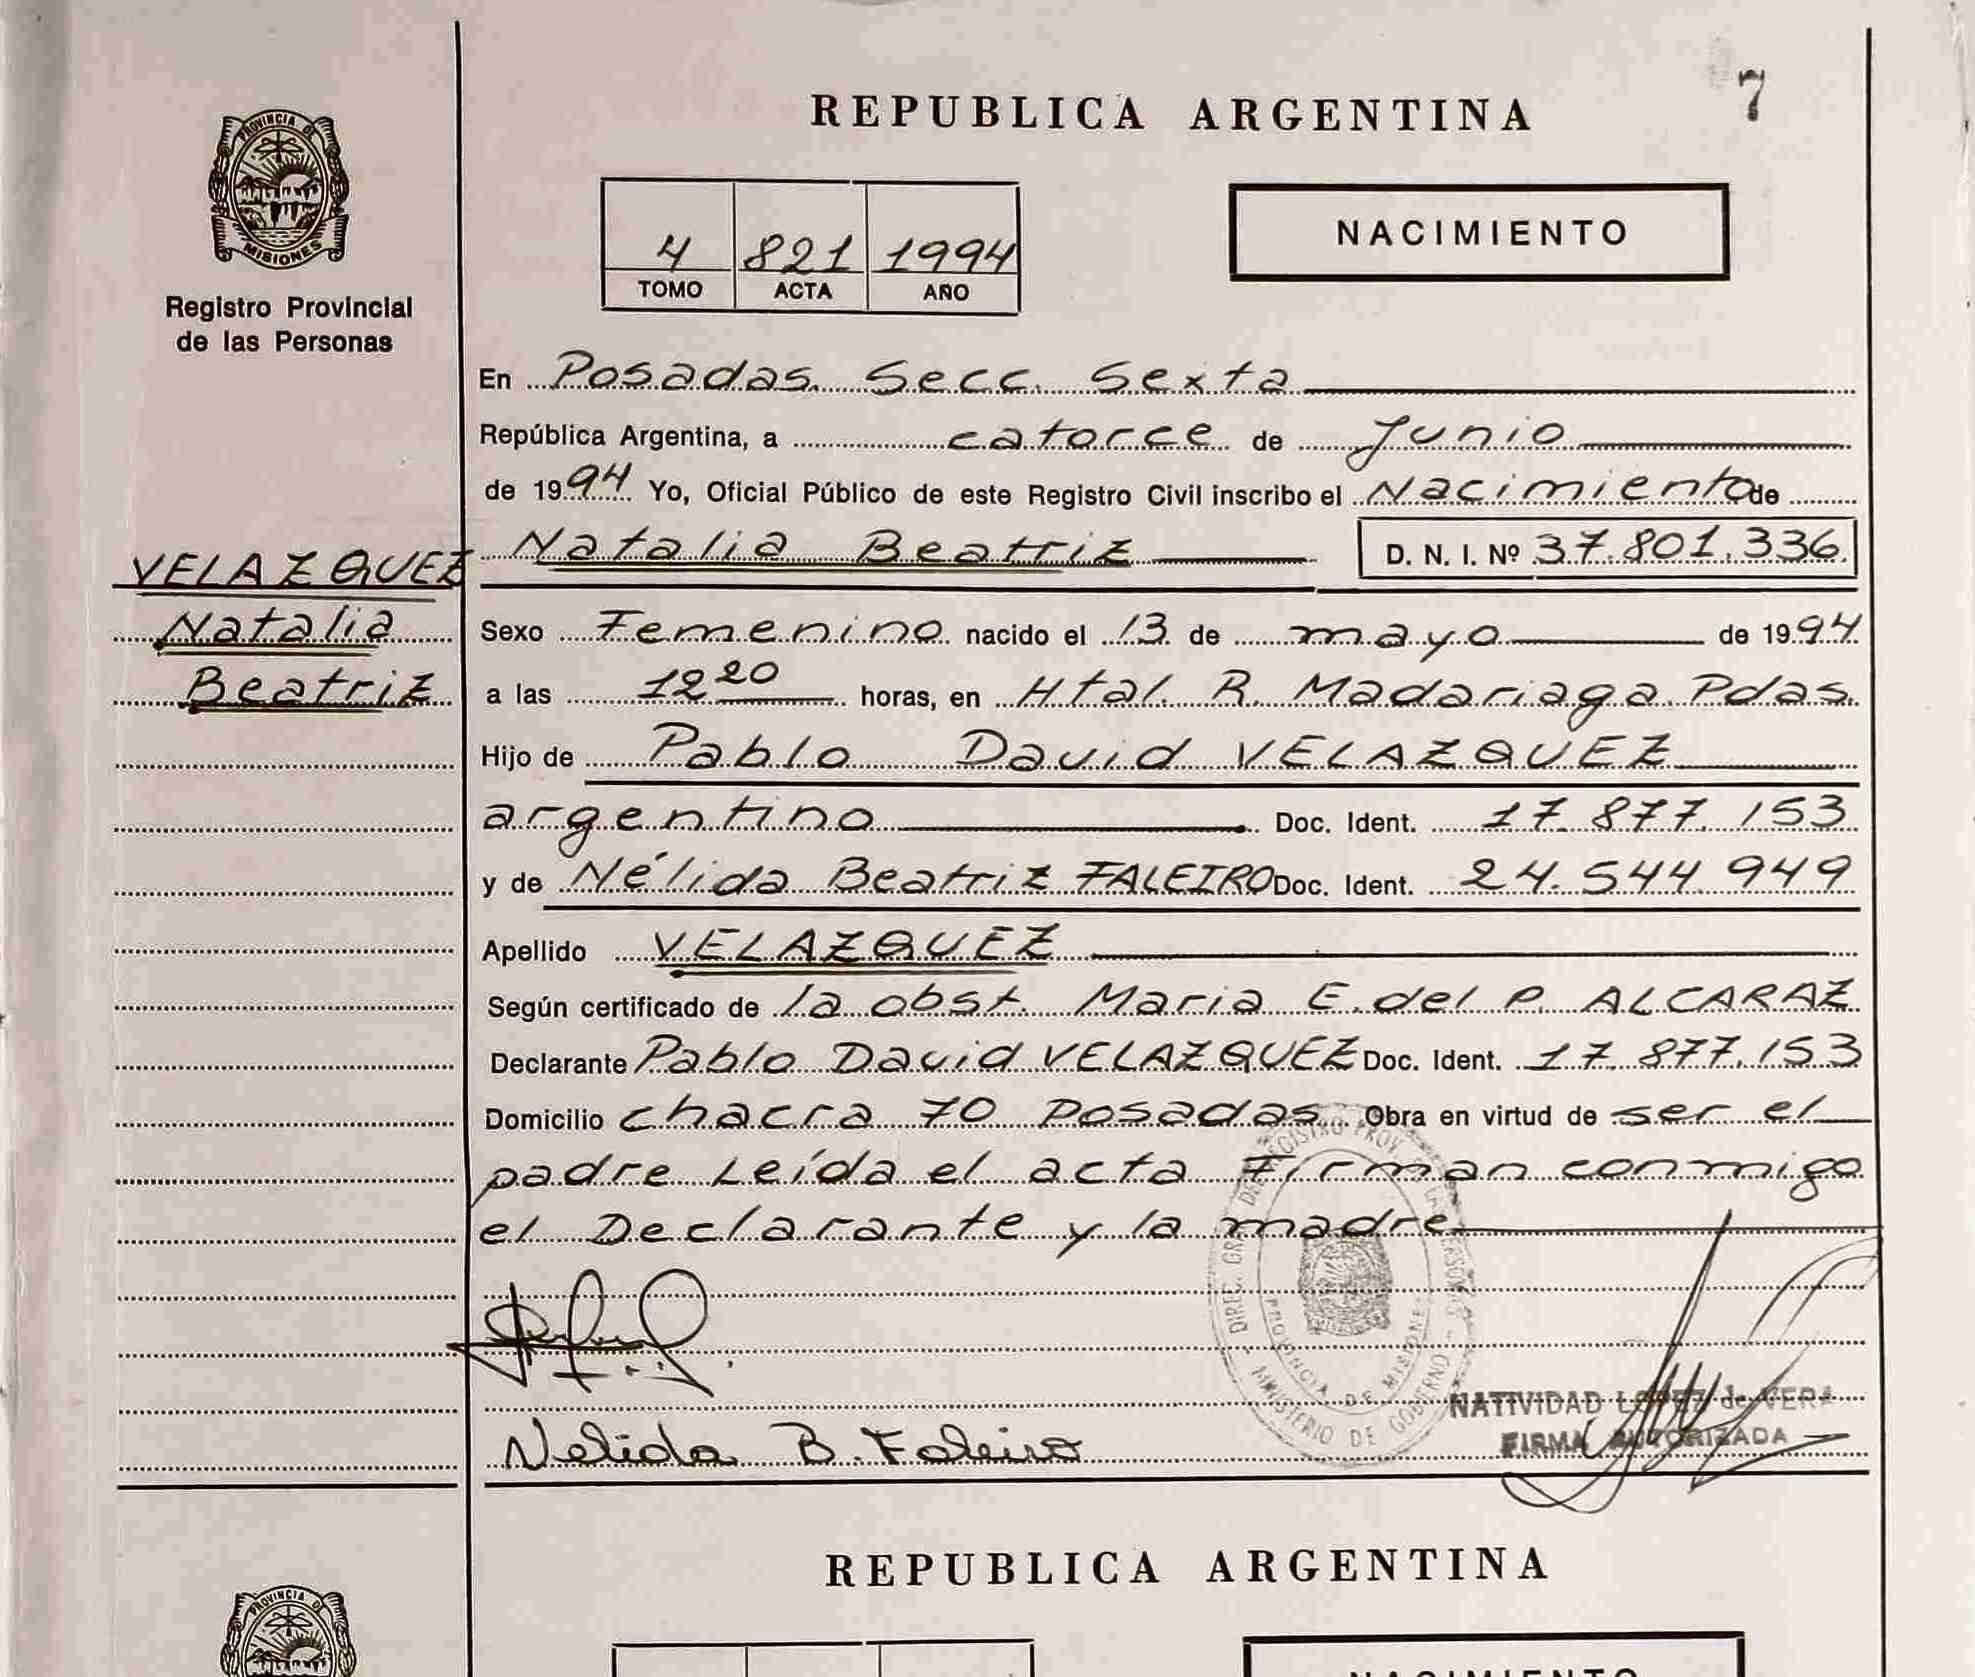 7
REPUBLICA ARGENTINA
PROVINCIA DE
MISIONES
Registro Provincial
de las Personas
4 821 1994
TOMO ACTA AÑO
NACIMIENTO
En Posadas Secc. Sexta
República Argentina, a catorce de Junio
de 1994 Yo, Oficial Público de este Registro Civil inscribo el Nacimiento de
Natalia Beatriz D. N. I. Nº 37.801.336.
VELAZQUEZ
Natalia
Beatriz
Sexo Femenino nacido el 13 de mayo de 1994
a las 12 20 horas, en Htal. R. Madariaga Pdas.
Hijo de Pablo David VELAZQUEZ
argentino Doc. Ident. 17.877.153
y de Nélida Beatriz FALEIRO Doc. Ident. 24.544.949
Apellido VELAZQUEZ
Según certificado de la obst. Maria E. del P. ALCARAZ
Declarante Pablo David VELAZQUEZ Doc. Ident. 17.877.153
Domicilio chacra 70 Posadas Obra en virtud de ser el
padre Leída el acta Firman conmigo
el Declarante y la madre
DIREC. GRAL. DEL REGISTRO PROV. DE LAS PERSONAS
PROVINCIA DE MISIONES
MINISTERIO DE GOBIERNO
NATIVIDAD LOPEZ de VERA
FIRMA AUTORIZADA
Nelida B. Faleiro
REPUBLICA ARGENTINA
PROVINCIA DE
NACIMIENTO